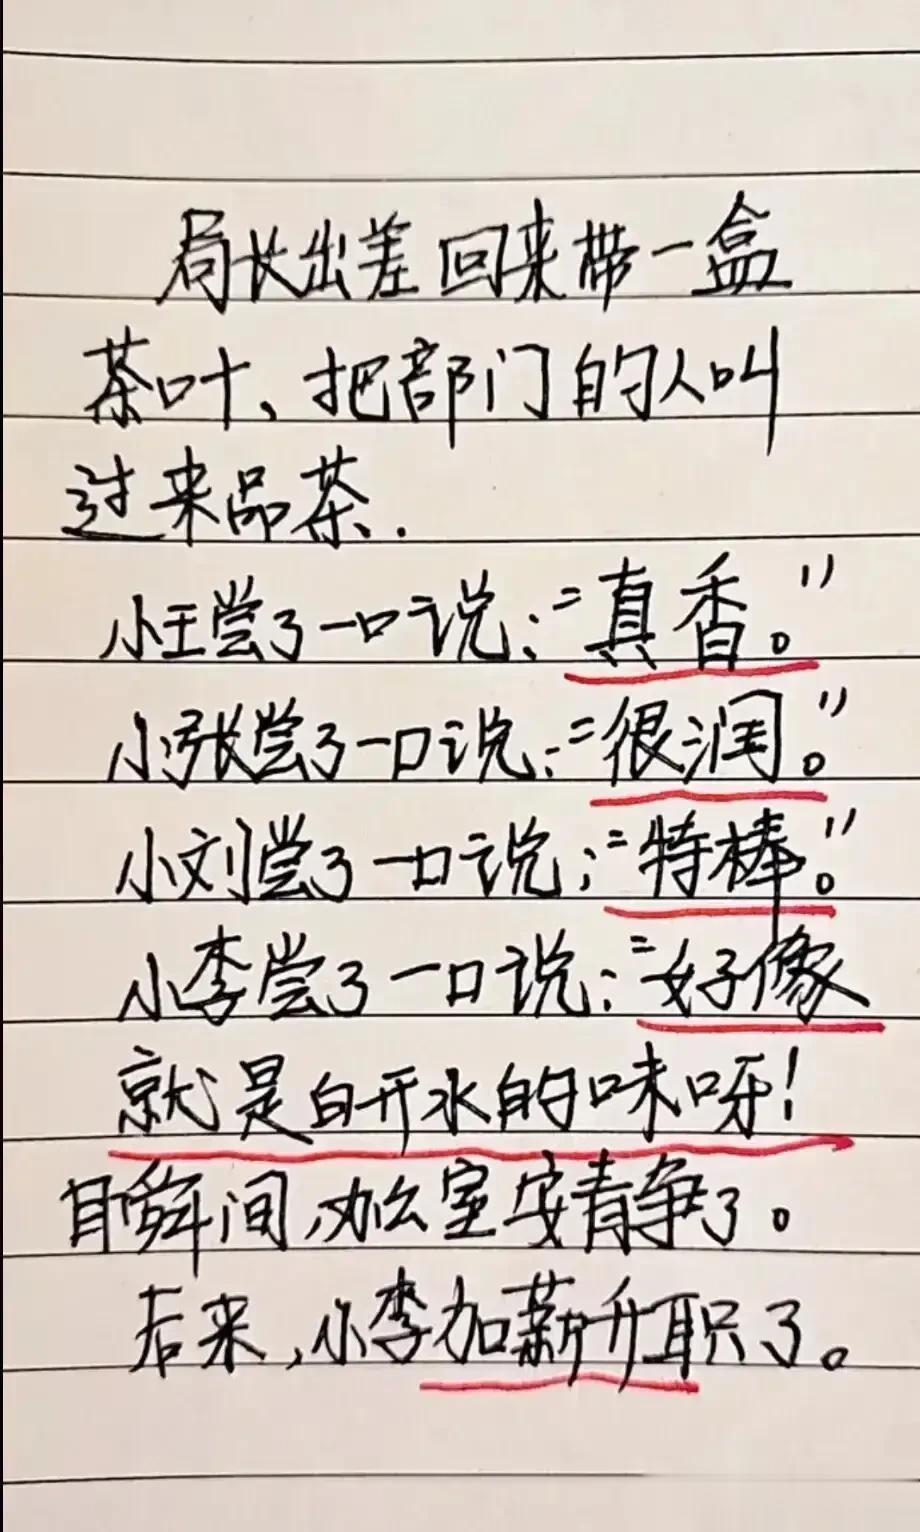 局长出差回来带一盒
茶叶、把部门的人叫
过来品茶.
小王尝了一口说:“真香。”
小张尝了一口说:“很润。”
小刘尝了一口说:“特棒。”
小李尝了一口说:“好像
就是白开水的味呀!
瞬间,办公室安静了。
后来,小李加薪升职了。